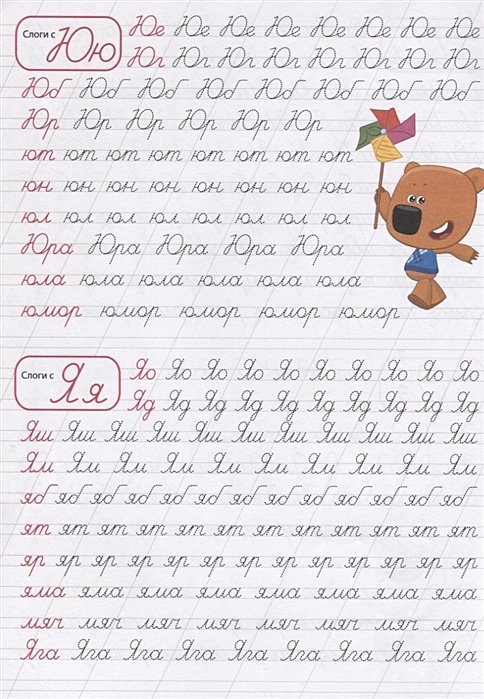 Слоги с Юю
Юе Юе Юе Юе Юе Юе Юе Юе Юе
Юг Юг Юг Юг Юг Юг Юг Юг Юг
Юб Юб Юб Юб Юб Юб Юб Юб
Юр Юр Юр Юр Юр Юр
ют ют ют ют ют ют ют ют
юн юн юн юн юн юн юн юн
юл юл юл юл юл юл юл юл
Юра Юра Юра Юра Юра
юла юла юла юла юла юла
юмор юмор юмор юмор юмор
Слоги с Яя
Яо Яо Яо Яо Яо Яо Яо Яо Яо Яо
Яд Яд Яд Яд Яд Яд Яд Яд Яд Яд
Яш Яш Яш Яш Яш Яш Яш Яш Яш Яш Яш Яш
Ям Ям Ям Ям Ям Ям Ям Ям Ям Ям
яб яб яб яб яб яб яб яб яб яб яб яб яб
ят ят ят ят ят ят ят ят ят ят ят ят
яр яр яр яр яр яр яр яр яр яр яр яр яр
яма яма яма яма яма яма яма яма
мяч мяч мяч мяч мяч мяч мяч мяч
Яга Яга Яга Яга Яга Яга Яга Яга Яга